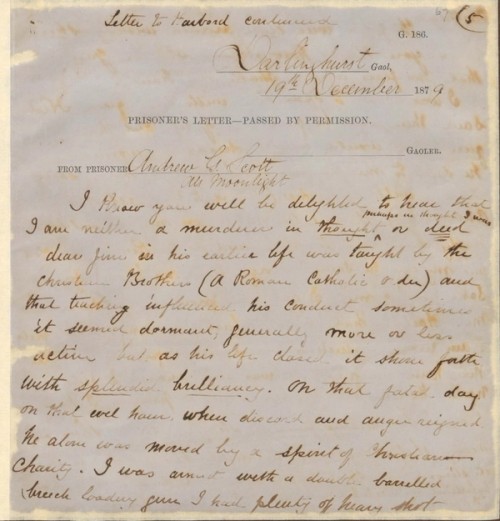 Letter to Harbord continued
67 (5
G. 186.
Darlinghurst Gaol,
19th December 1879
PRISONER'S LETTER—PASSED BY PERMISSION.
GAOLER.
FROM PRISONER Andrew G. Scott
als Moonlight
I know you will be delighted to hear that
perhaps in thought I was
I am neither a murderer in thought or deed
dear Jim in his earlier life was taught by the
christian Brothers (A Roman Catholic order) and
that teaching influenced his conduct sometimes
it seemed dormant, generally more or less
active but as his life closed it shone forth
with splendid brilliancy. On that fatal day
on that evil hour when discord and anger reigned
he alone was moved by a spirit of Christian
Charity. I was armed with a double barrelled
breech loading gun I had plenty of heavy shot